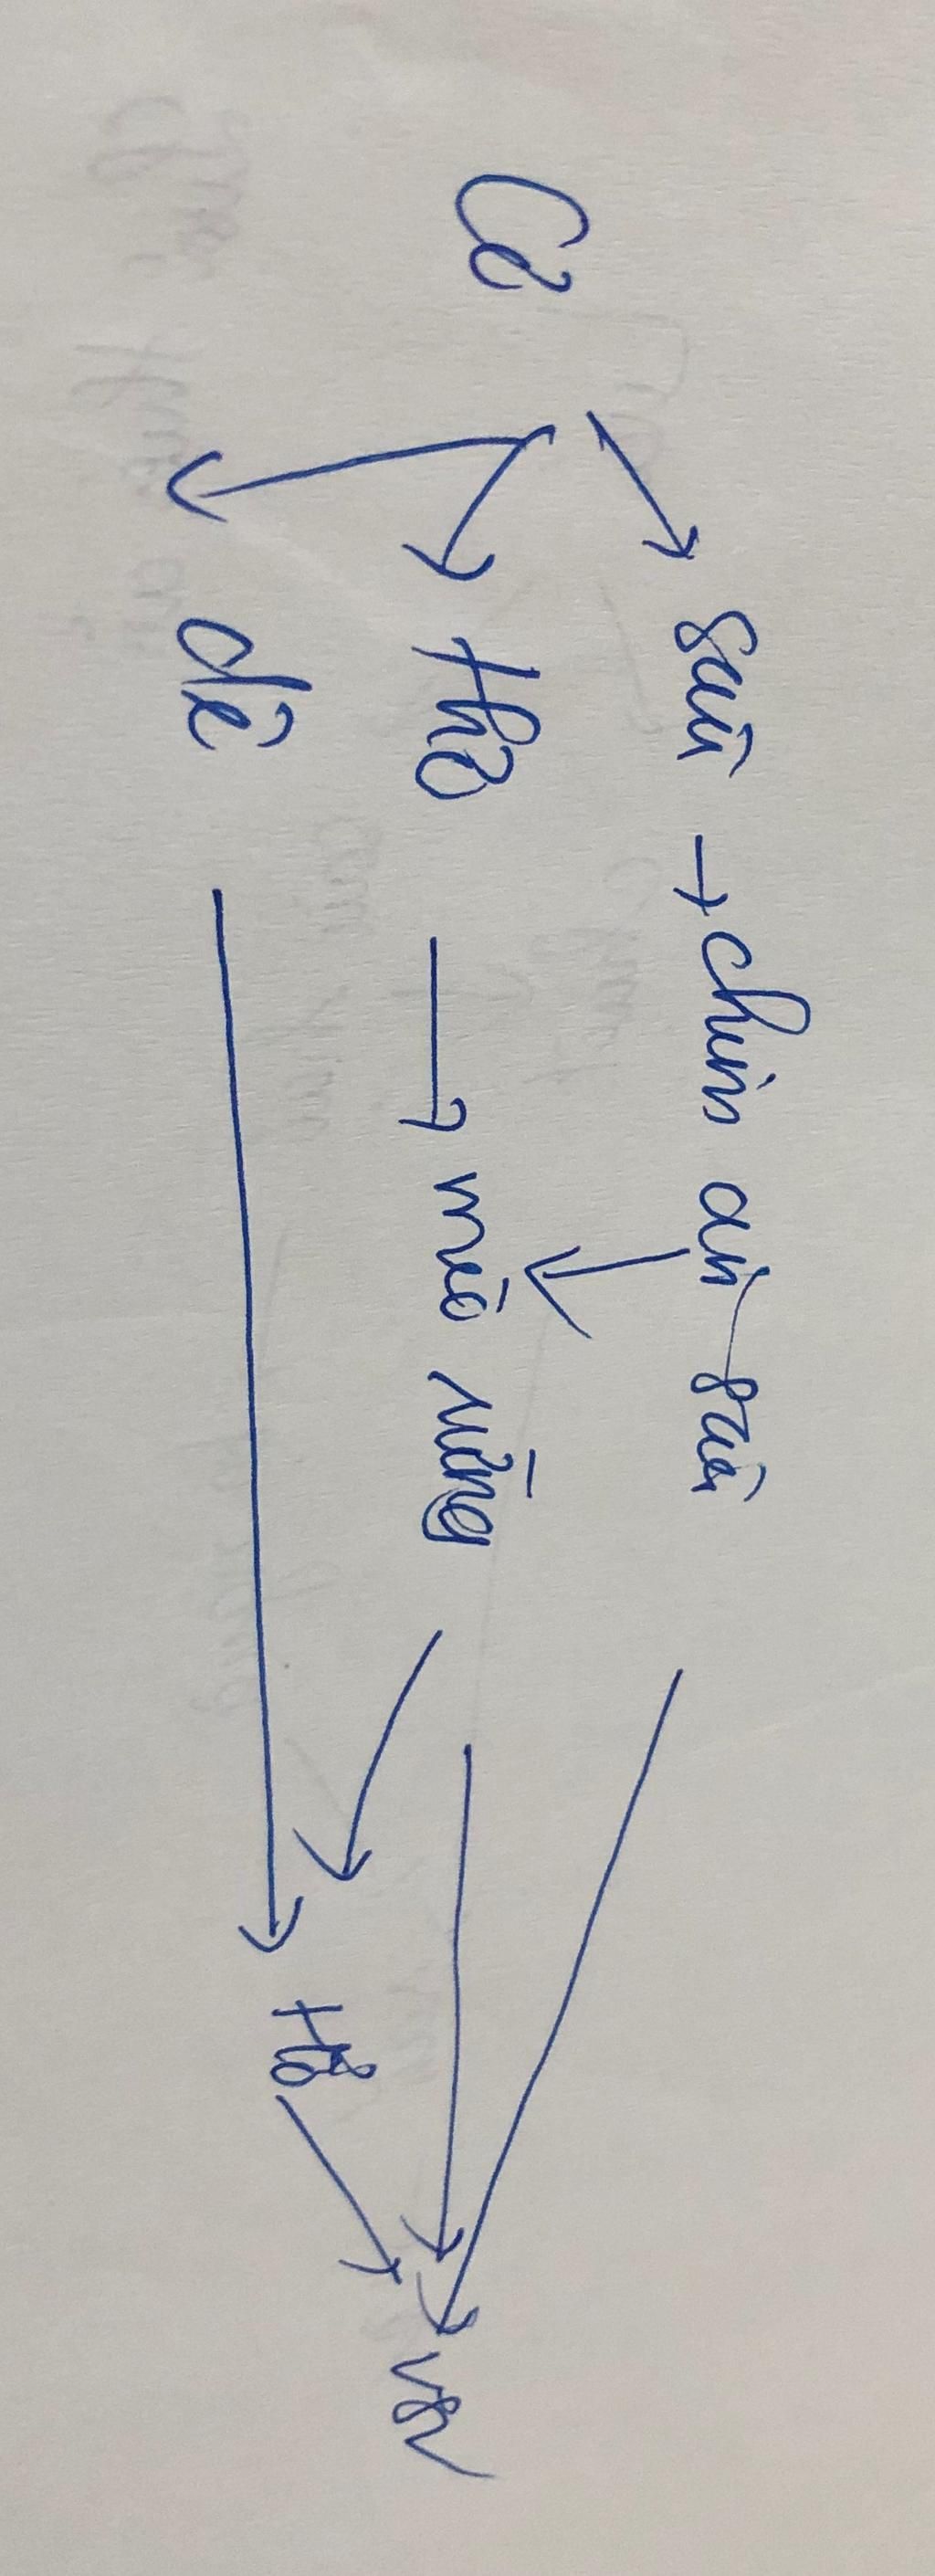 sâu → chim ăn sâu
Cỏ
Thỏ → mèo rừng
VSV
Hổ
dê